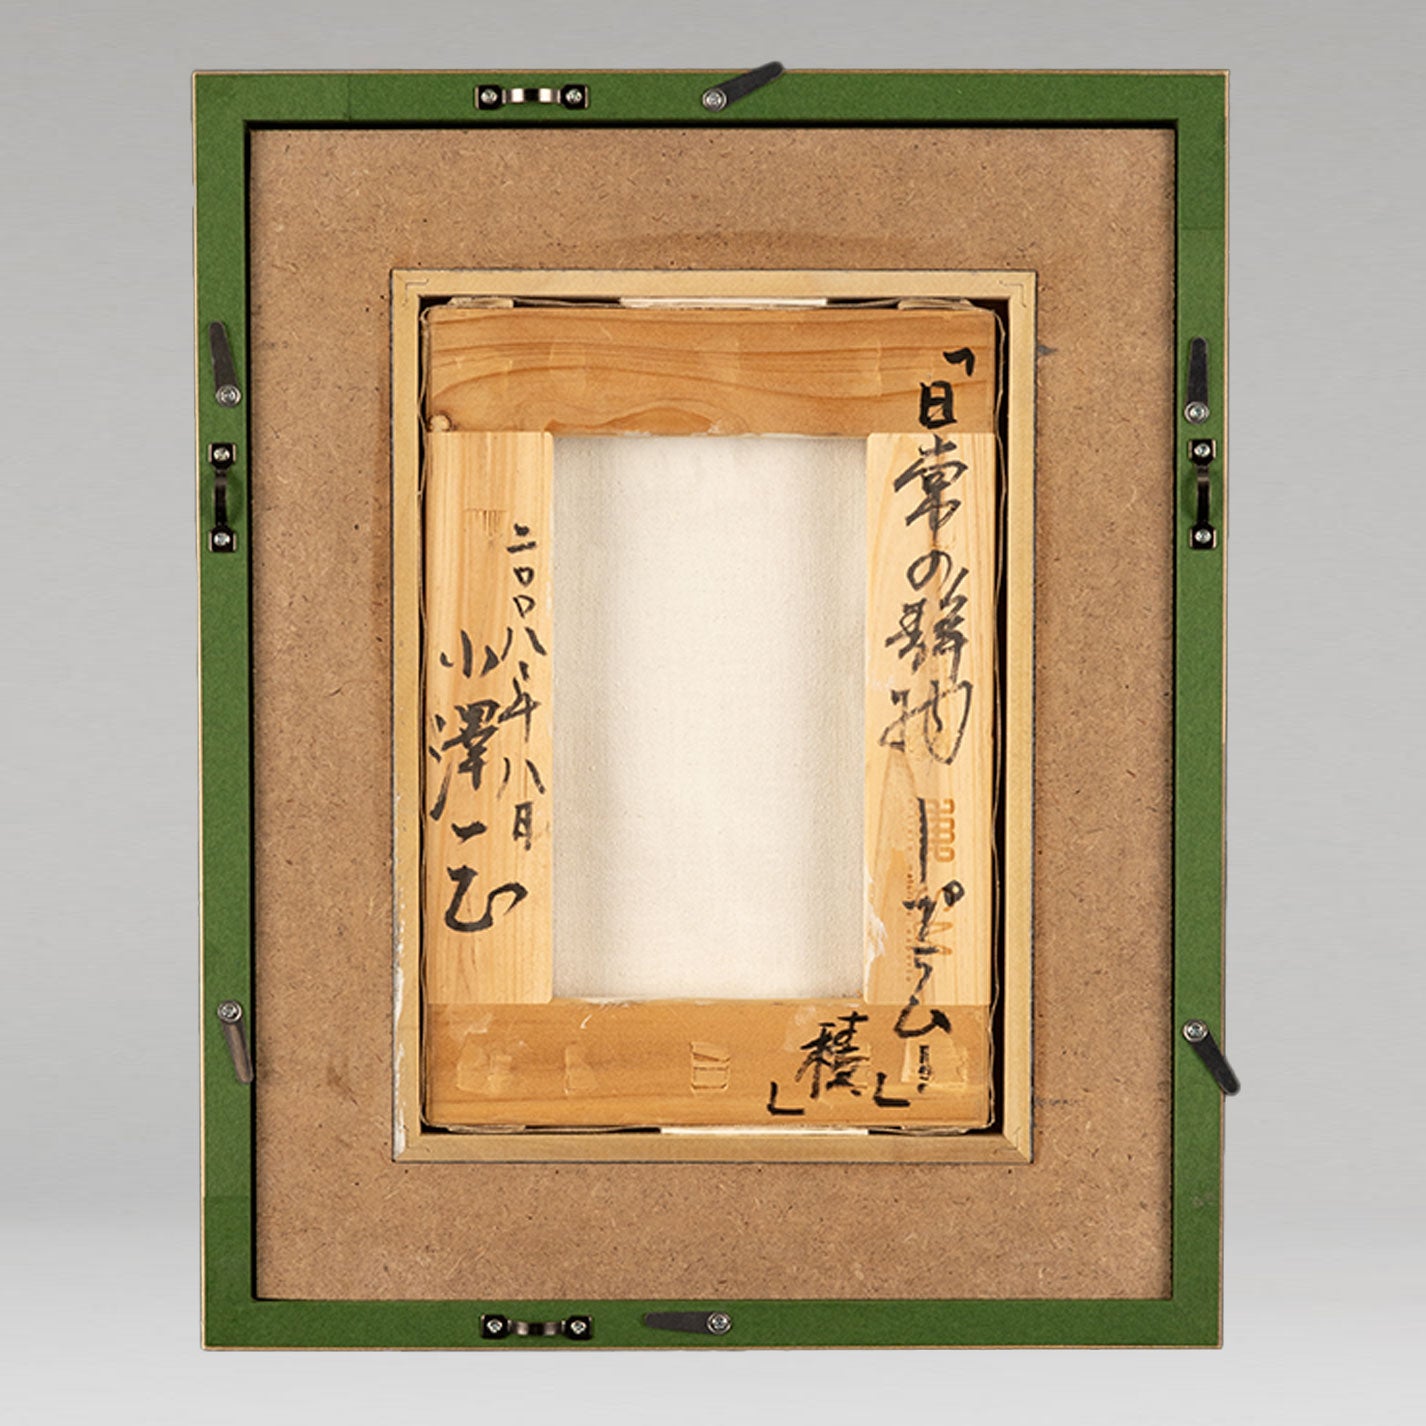 「日常の静物ープラムー」
積」
二〇〇八年八月
小澤一正